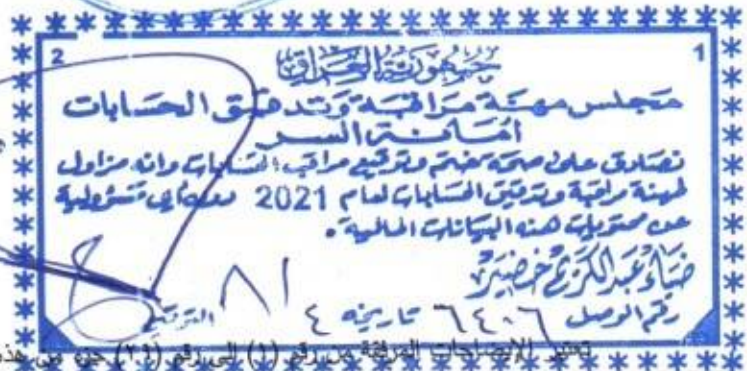 2
1
جمهورية العراق
مجلس مهنة مراقبة وتدقيق الحسابات
أمانة السر
نصادق على صحة ختم وتوقيع مراقب الحسابات وانه مزاول
لمهنة مراقبة وتدقيق الحسابات لعام 2021 دون أي مسؤولية
عن محتويات هذه البيانات المالية
ضياء عبد الكريم خضير
رقم الوصل ٦٤٠٦ تاريخه ٤ / ٨ التوقيع
تعتبر الإيضاحات المرفقة من رقم (١) الى رقم (٢٦) جزء من هذه